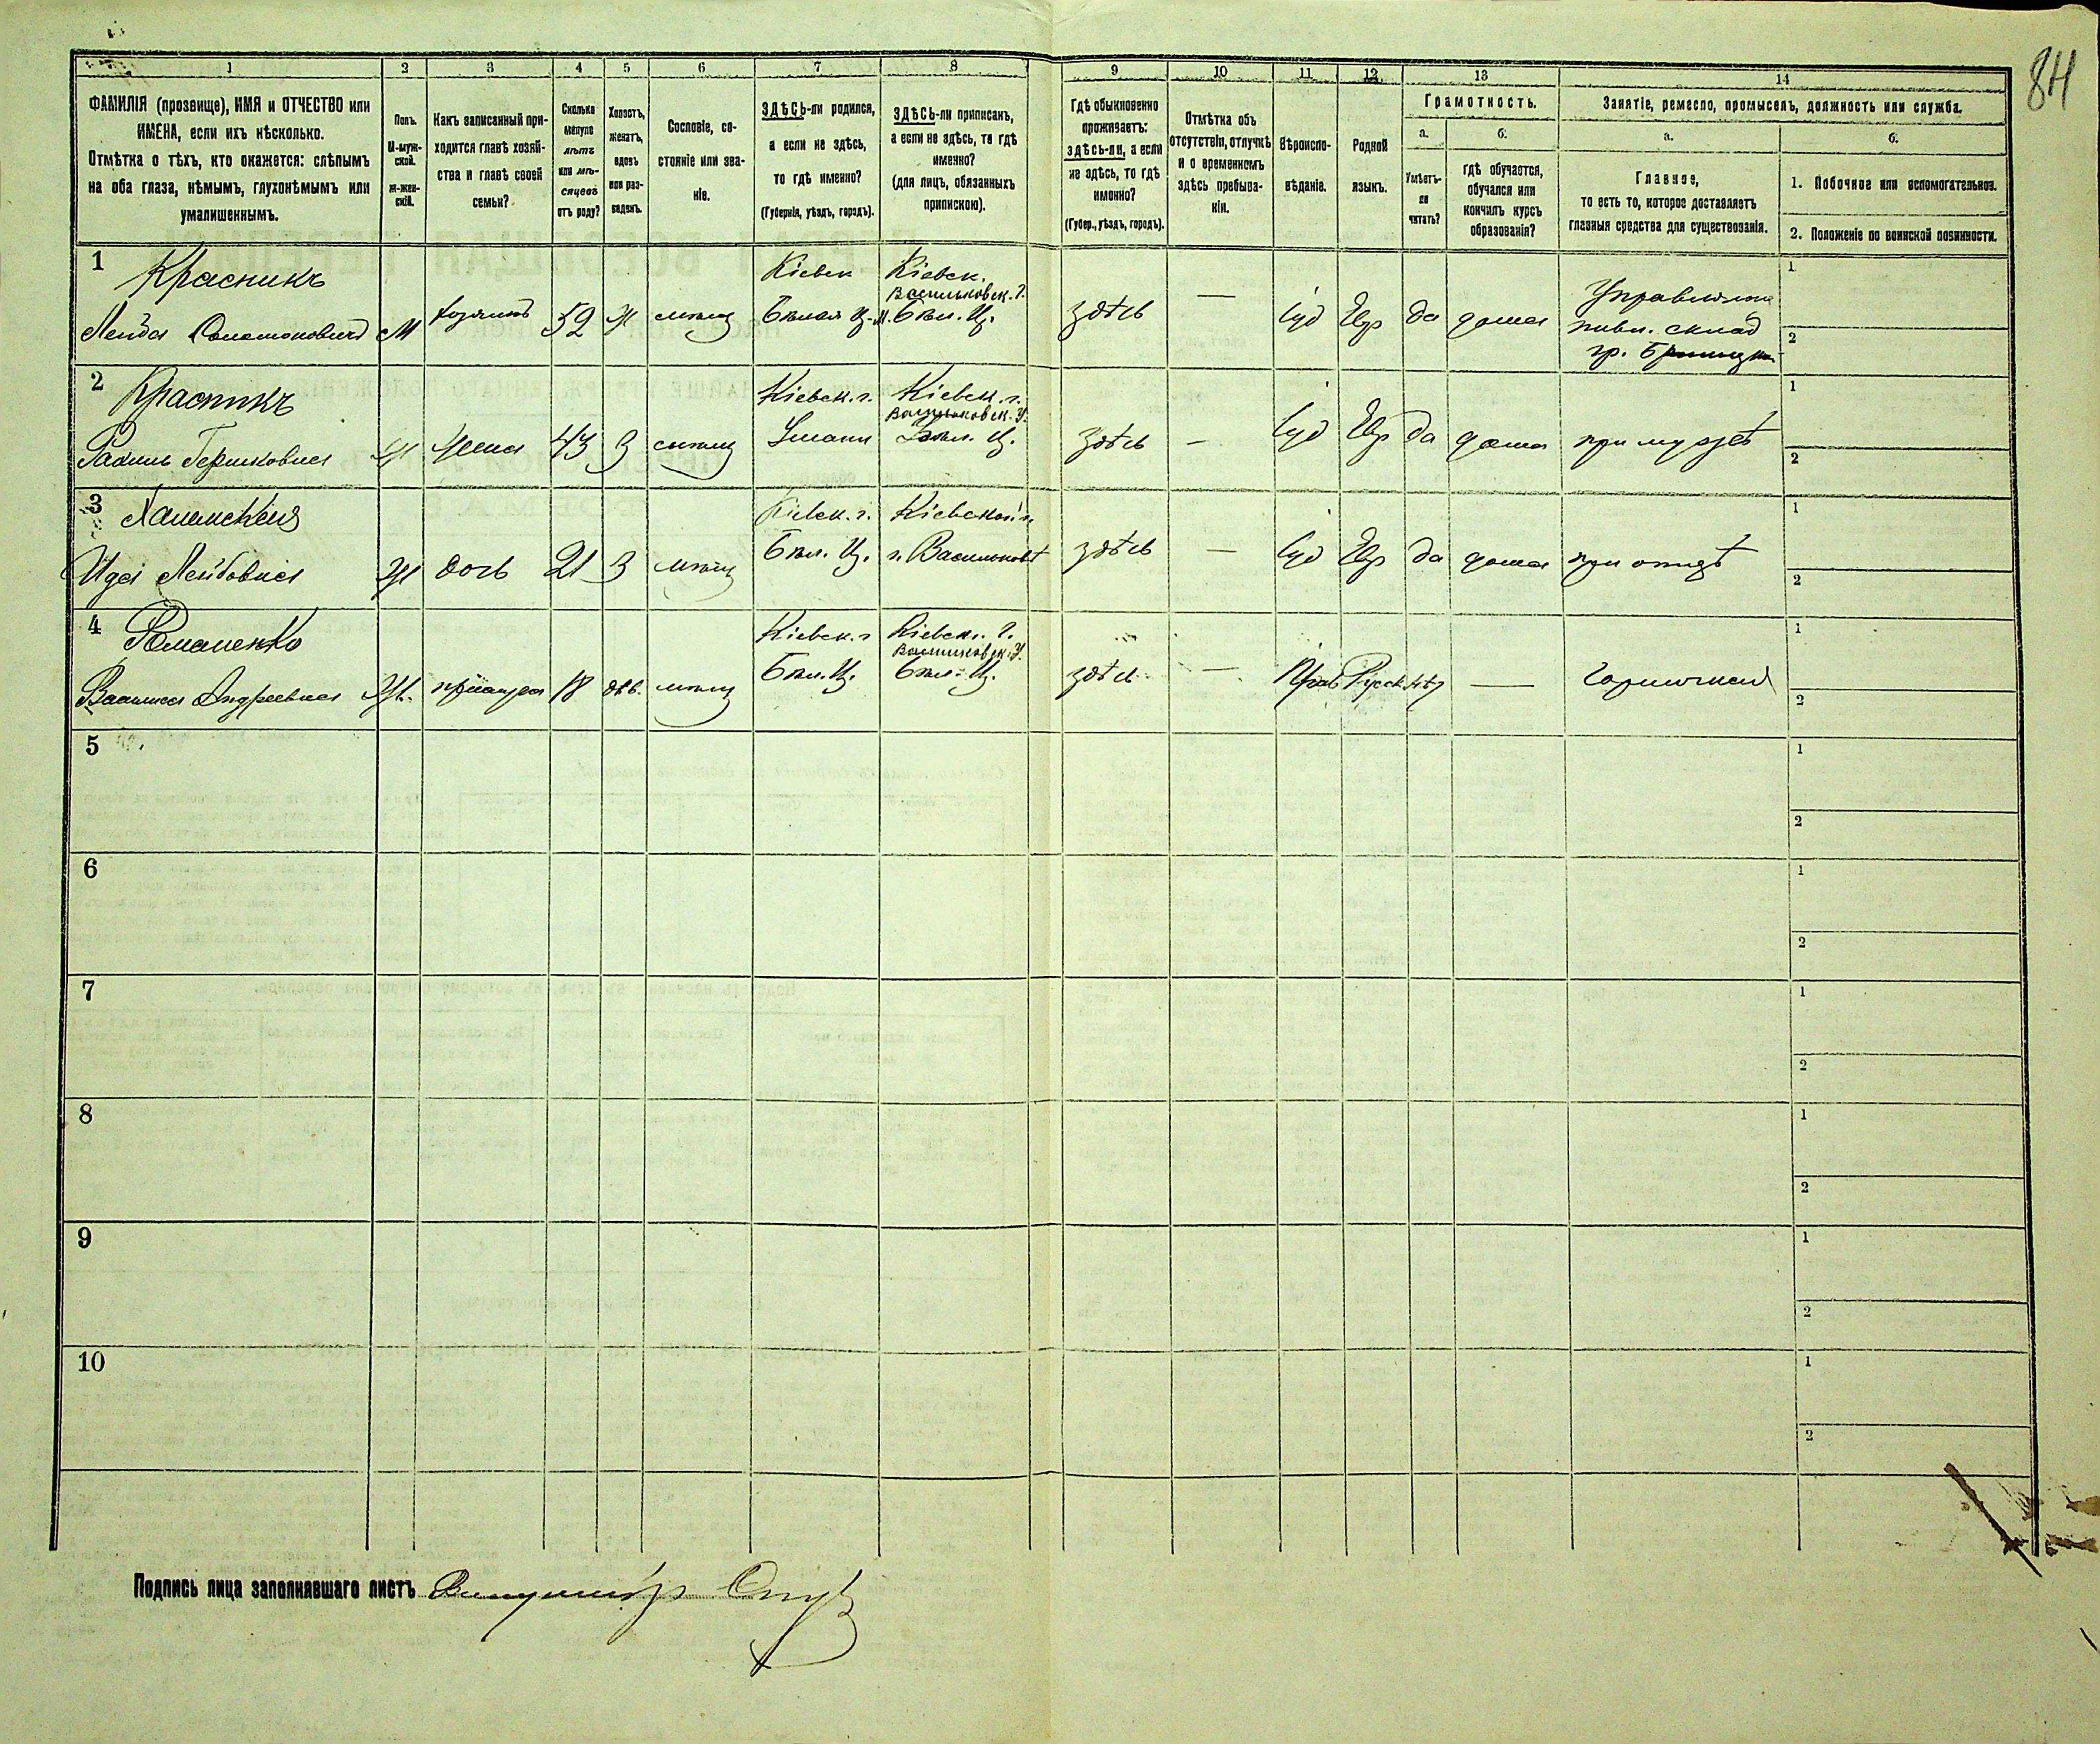 84
1 2 3 4 5 6 7 8 9 10 11 12 13 14
ФАМИЛІЯ (прозвище), ИМЯ и ОТЧЕСТВО или
ИМЕНА, если ихъ нѣсколько.
Отмѣтка о тѣхъ, кто окажется: слѣпымъ
на оба глаза, нѣмымъ, глухонѣмымъ или
умалишеннымъ.
Полъ.
М-муж-
ской.
Ж-жен-
скій.
Какъ записанный при-
ходится главѣ хозяй-
ства и главѣ своей
семьи?
Сколько
минуло
лѣтъ
или мѣ-
сяцевъ
отъ роду?
Холостъ,
женатъ,
вдовъ
или раз-
веденъ.
Сословіе, со-
стояніе или зва-
ніе.
ЗДѢСЬ-ли родился,
а если не здѣсь,
то гдѣ именно?
(Губернія, уѣздъ, городъ).
ЗДѢСЬ-ли приписанъ,
а если не здѣсь, то гдѣ
именно?
(для лицъ, обязанныхъ
припискою).
Гдѣ обыкновенно
проживаетъ:
здѣсь-ли, а если
не здѣсь, то гдѣ
именно?
(Губер., уѣздъ, городъ).
Отмѣтка объ
отсутствіи, отлучкѣ
и о временномъ
здѣсь пребыва-
ніи.
Вѣроиспо-
вѣданіе.
Родной
языкъ.
Грамотность.
а.
Умѣетъ-
ли
читать?
б.
гдѣ обучается,
обучался или
кончилъ курсъ
образованія?
Занятіе, ремесло, промыселъ, должность или служба.
а.
Главное,
то есть то, которое доставляетъ
главныя средства для существованія.
б.
1. Побочное или вспомогательное.
2. Положеніе по воинской повинности.
1 Красникъ Кіевск Кіевск. 1
Васильковск. У.
Лейба Соломоновичъ М хозяинъ 52 Ж мѣщ Бѣлая Ц. М. Бѣл. Ц. здѣсь — Іуд Евр да дома Управляющ
пивн. склад 2
гр. Браницк
2 Красникъ Кіевск. г. Кіевск. г. 1
Васильковск. У.
Рахиль Гершковна Ж жена 43 З мѣщ Умани Бѣл. Ц. здѣсь — Іуд Евр да дома при мужѣ 2
3 Кіевск. г. Кіевской г. 1
Ида Лейбовна Ж дочь 21 З мѣщ Бѣл. Ц. г. Васильковъ здѣсь — Іуд Евр да дома при отцѣ 2
4 Романенко Кіевск. г Кіевск. г. 1
Васильковск. У.
Василиса Андреевна Ж. прислуга 18 дѣв. мѣщ Бѣл. Ц. Бѣл. Ц. здѣсь — Прав Русск нѣт — Горничная 2
5 1
2
6 1
2
7 1
2
8 1
2
9 1
2
10 1
2
Подпись лица заполнявшаго листъ